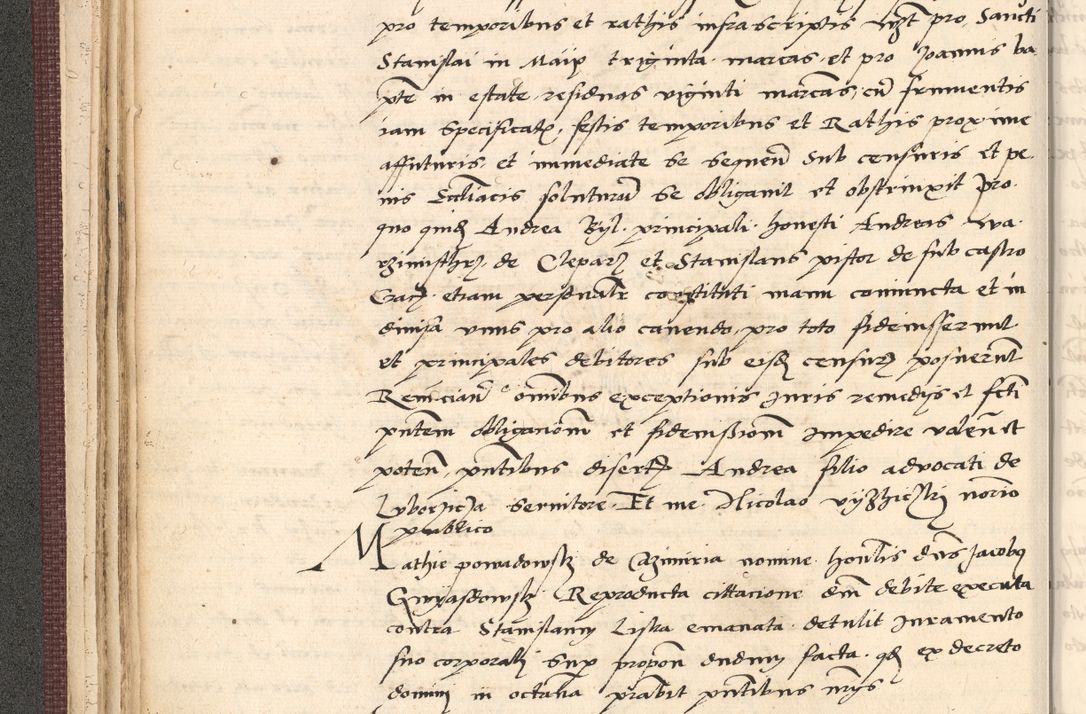 pro temporibus et rathis infrascriptis vz̃t pro Sancti
Stanislai in Maio triginta marcas et pro Joannis ba
pte in estate residuas viginti marcas, cũ frumentis
iam specificatis, festis temporibus et Rathis proxime
affuturis et immediate se sequeñ Sub censuris et pe
nis Eccliacis soluturũ se obligavit et obstrinxit Pro
quo quidẽ Andrea Ryl principali honesti Andreas
de Clepardz et Stanislaus pistor de sub castro
Crac. etiam personalr constituti manu coniuncta et in
divisa unus pro alio cavendo, pro toto fideiusserunt
et principales debitores sub eisdẽ censuris posuerũt
Renuncianẽ omnibus exceptionis Juris remedys et fcti
pñtem obliganõnem et fideiussionem Impedire valeñ et
poteñ, pñtibus disertis Andrea filio advocati de
servitore Et me Nicolao norio
publico
Mathie powadowskj de Cazimiria nomine honẽlis dñs Jacobus
Reproducta cittacione dnĩ debite executa
contra Stanislaum Liska emanata detulit Juramento
suo corporali Sup propoñ dudum facta qd̃ ex decreto
domini in octava prabit pñtibus